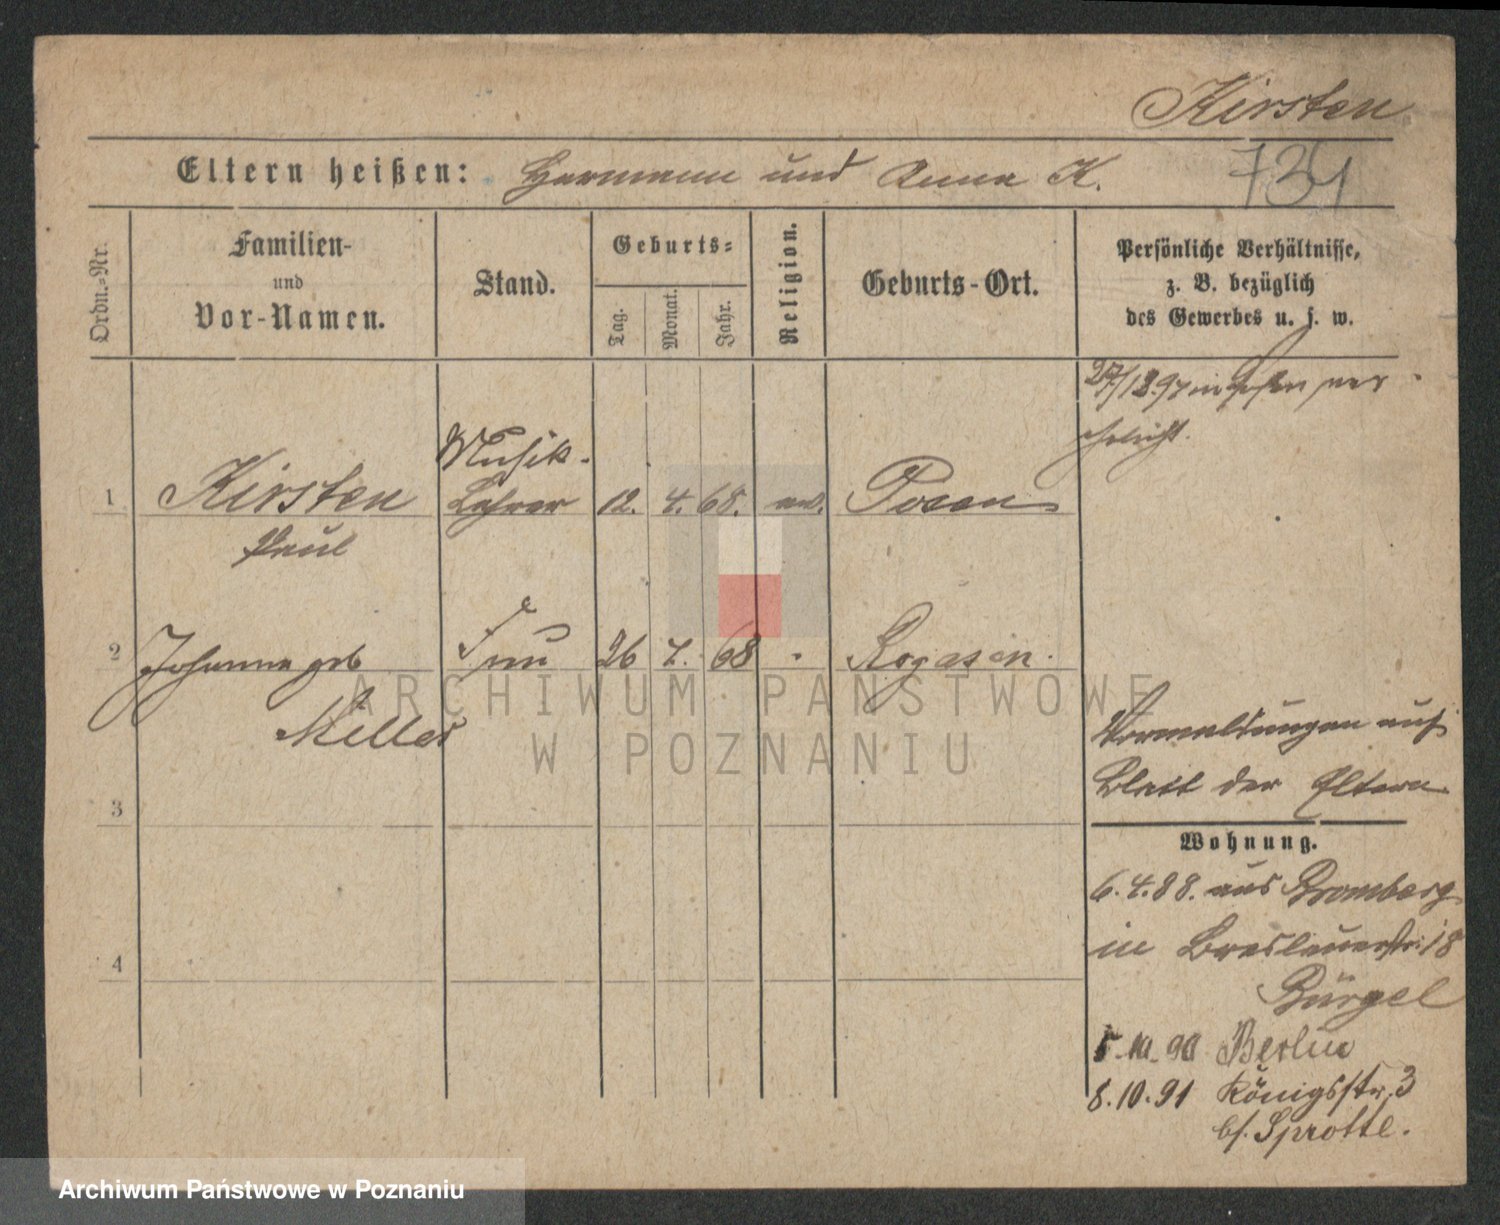 Kirsten
Eltern heißen: Hermann und Anna K. 734
Ordn.-Nr.
Familien-
und
Vor-Namen.
Stand.
Geburts-
Tag.
Monat.
Jahr.
Religion.
Geburts-Ort.
Persönliche Verhältnisse,
z. B. bezüglich
des Gewerbes u. s. w.
27/12.97 in Posen ver
ehelicht.
Musik-
1 Kirsten Lehrer 12. 4. 68. ev. Posen
Paul
2 Johanna geb Frau 26 7. 68 " Rogasen.
Meller
ARCHIWUM PAŃSTWOWE
W POZNANIU
Vormeldungen auf
Blatt der Eltern
3
Wohnung.
6.4.88. aus Bromberg
in Breslauerstr. 18
4
Bürgel
5.10.90 Berlin
8.10.91 Königsstr. 3
bf. Sprotte.
Archiwum Państwowe w Poznaniu